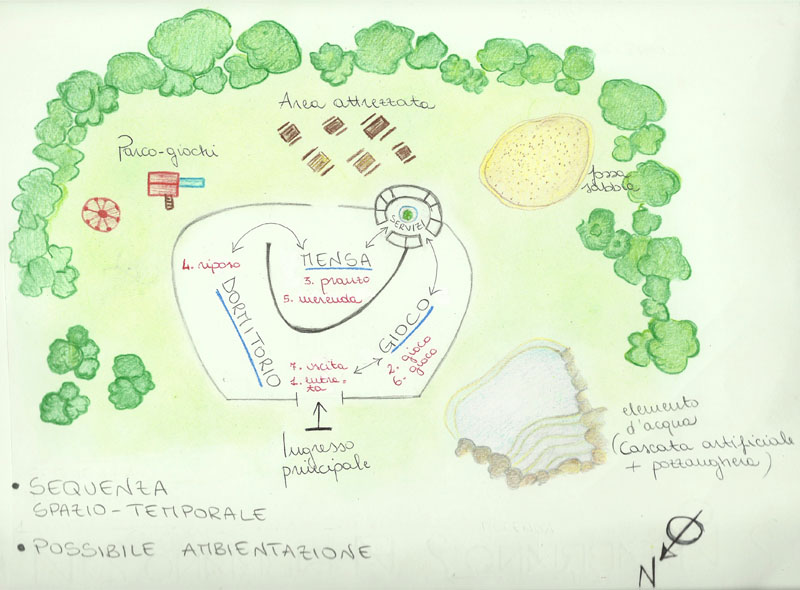 Area attrezzata
Parco-giochi
fossa
sabbia
SERVIZI
4. riposo
MENSA
3. pranzo
5. merenda
DORMITORIO
GIOCO
2. gioco
6. gioco
7. uscita
1. entra-
ta
Ingresso
principale
elemento
d'acqua
(cascata artificiale
+ pozzanghera)
• SEQUENZA
SPAZIO-TEMPORALE
• POSSIBILE AMBIENTAZIONE
N